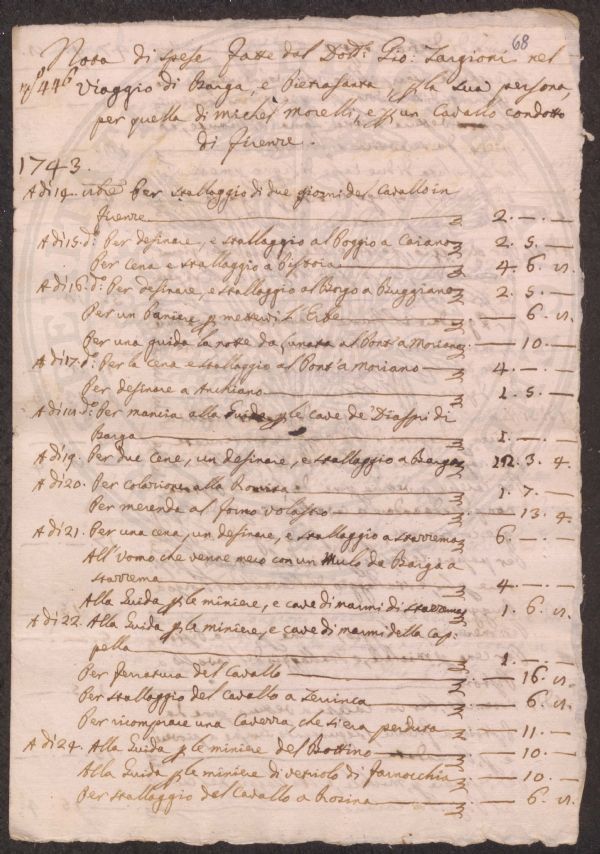 68
Nota di spese fatte dal Dott. Gio: Targioni nel
n.° 446 Viaggio di Barga, e Pietrasanta, p la sua persona,
per quella di Michel Morelli, e p un Cavallo condotto
di Firenze.
1743.
A dì 14. 8bre Per stallaggio di due giorni del Cavallo in
Firenze — 2. — . —
A dì 15. d.° Per desinare, e stallaggio al Poggio a Caiano — 2. 5. —
Per cena e stallaggio a Pistoia — 4. 6. 8.
A dì 16. d.° Per desinare, e stallaggio al Borgo a Buggiano — 2. 5. —
Per un Paniere p mettervi l'Erbe — 6. 8.
Per una guida la notte da al Pont'a Moriano — 10. —
A dì 17. d.° Per la cena e stallaggio al Pont'a Moriano — 4. — . —
Per desinare a Anchiano — 1. 5. —
A dì 18. d.° Per mancia alla Guida p le cave de' Diaspri di
Barga — 1. — . —
A dì 19. Per due cene, un desinare, e stallaggio a Barga 12. 3. 4.
A dì 20. Per colazione alla — 1. 7. —
Per merenda al Forno volastro — 13. 4.
A dì 21. Per una cena, un desinare, e stallaggio a Stazzema 6. — . —
All'Uomo che venne meco con un Mulo da Barga a
Stazzema — 4. — . —
Alla Guida p le miniere, e cave di marmi di Stazzema 1. 6. 8.
A dì 22. Alla Guida p le miniere, e cave di marmi della Cap:
pella — 1. — . —
Per ferratura del Cavallo — 16. 8.
Per stallaggio del Cavallo a Levinca — 6. 8.
Per ricomprare una Cavezza, che s'era perduta — 11. —
A dì 24. Alla Guida p le miniere del Bottino — 10. —
Alla Guida p le miniere di vetriolo di Farnocchia — 10. —
Per stallaggio del Cavallo a Rosina — 6. 8.